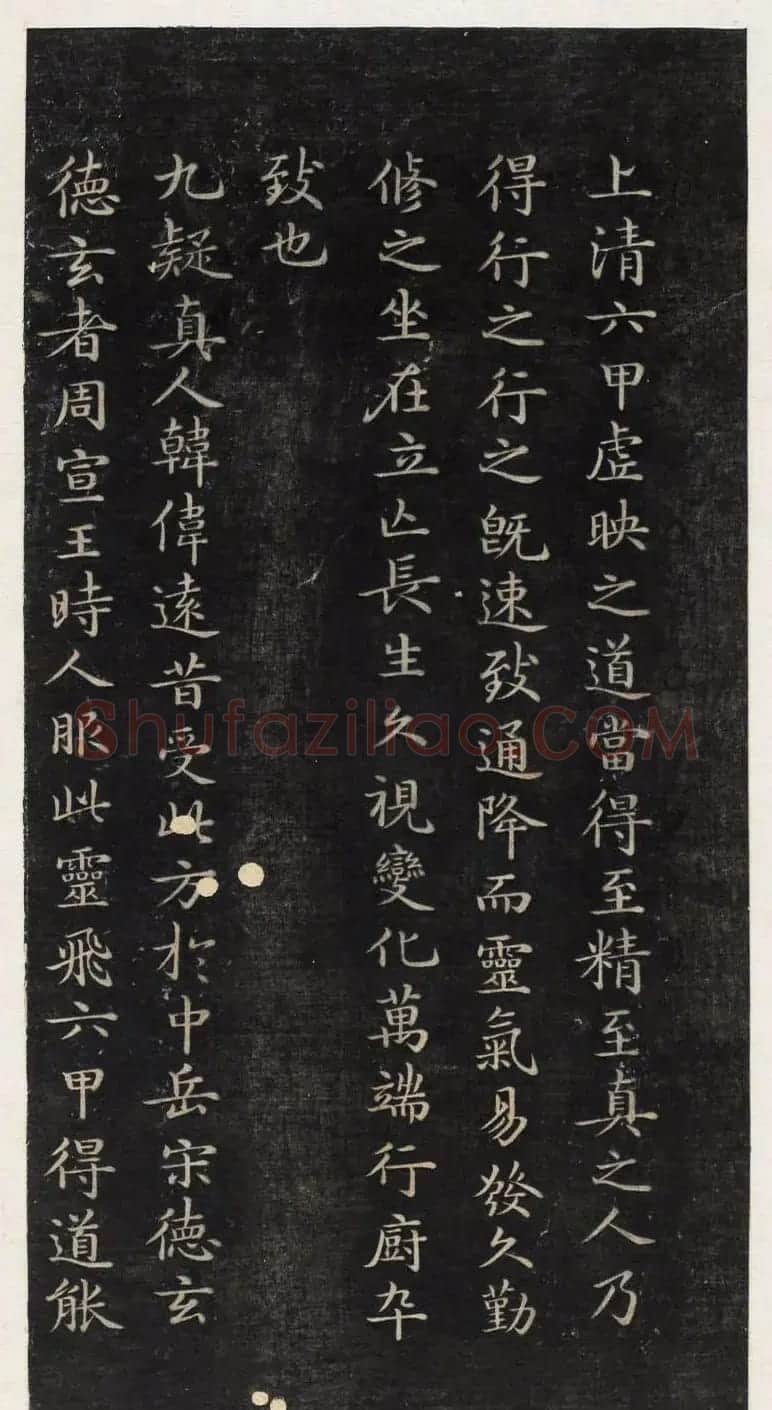 上清六甲虛映之道當得至精至真之人乃
得行之行之既速致通降而靈氣易發久勤
修之坐在立亡長生久視變化萬端行廚卒
致也
九疑真人韓偉遠昔受此方於中岳宋德玄
德玄者周宣王時人服此靈飛六甲得道能
Shufaziliao.COM